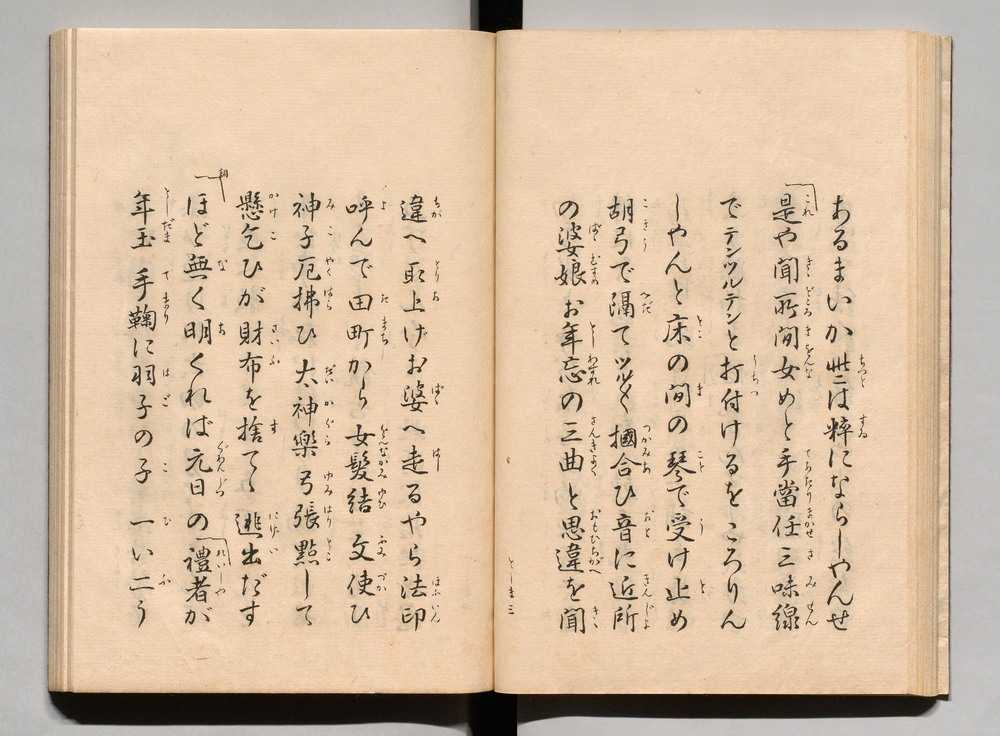 あるまいか些とは粋にならしやんせ
是や聞所聞女めと手當任三味線
でテンツルテンと打付けるをころりん
しやんと床の間の琴で受け止め
胡弓で隔てツル〳〵摑合ひ音に近所
の婆娘お年忘の三曲と思違を聞
としま 三
違へ取上げお婆へ走るやら法印
呼んで田町から女髪結文使ひ
神子厄拂ひ太神樂弓張點して
懸乞ひが財布を捨てゝ逃出だす
ほど無く明くれば元日の禮者が
年玉手鞠に羽子の子一い二う